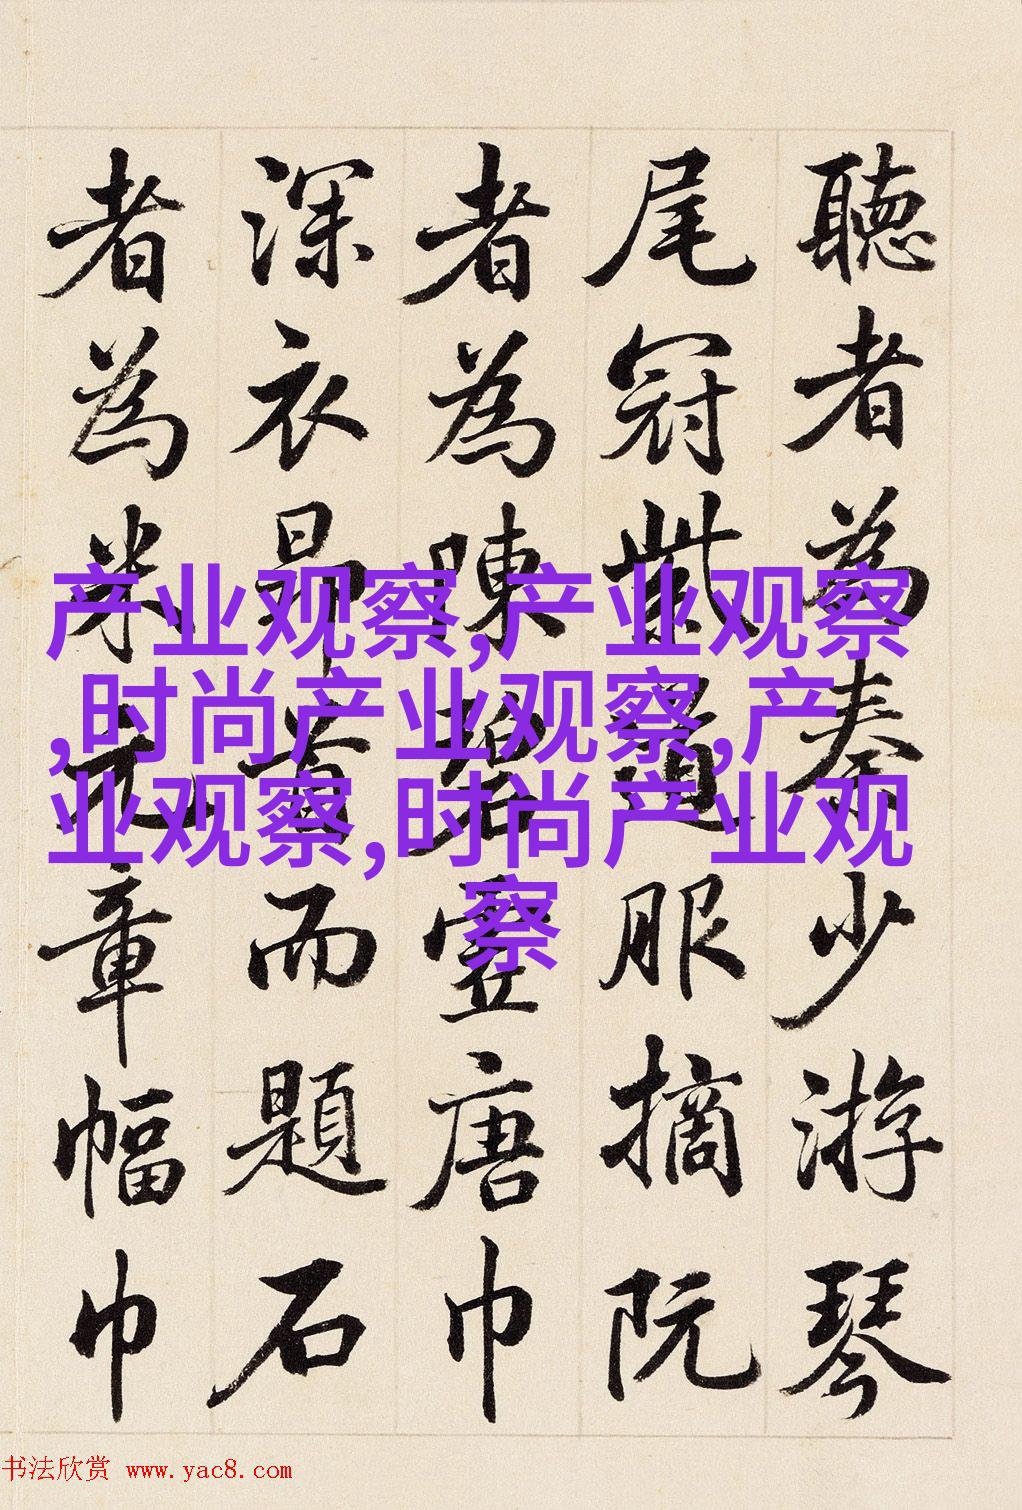 聽者為秦少游琴
尾冠紫道服摘阮
者為陳碧虛唐巾
深衣昂首而題石
者為米元章幅巾
产业观察,产业观察
,时尚产业观察,产
业观察,时尚产业观
察
书法欣赏 www.yac8.com